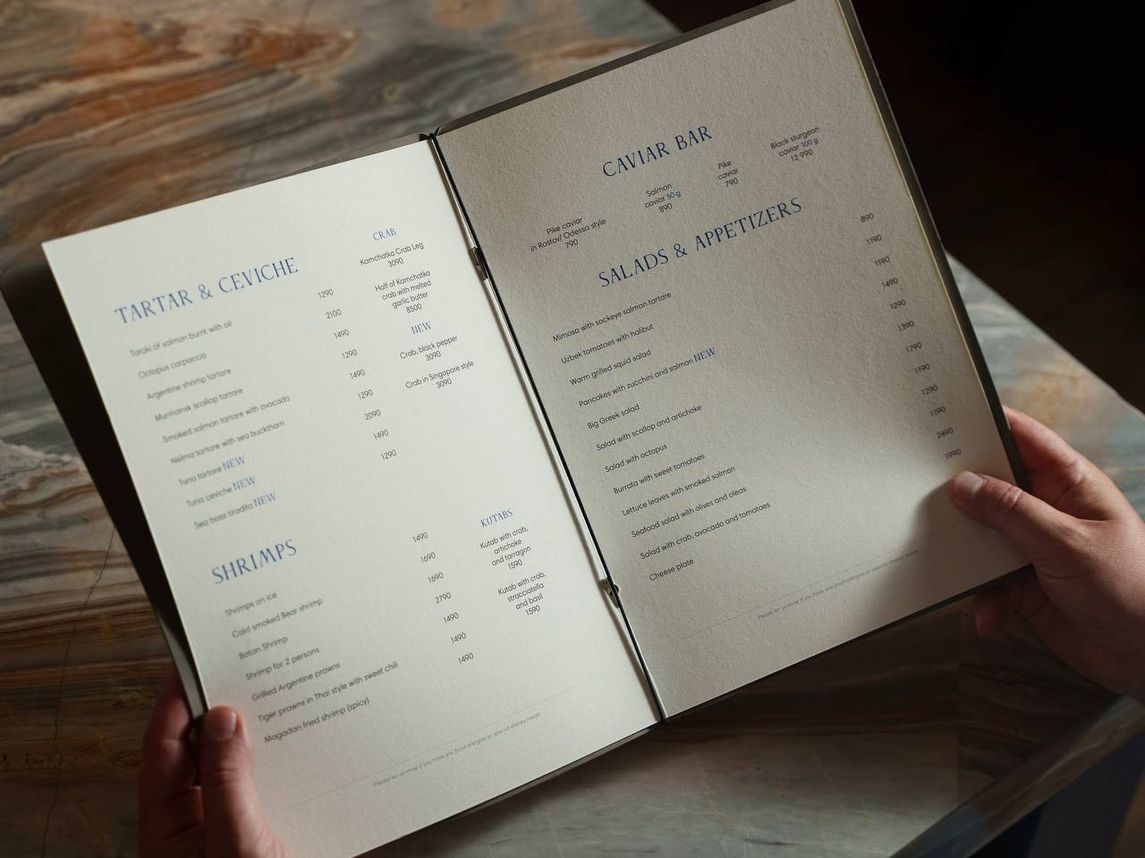 TARTAR & CEVICHE
Tataki of salmon burnt with oil 1290
Octopus carpaccio 2100
Argentine shrimp tartare 1490
Murmansk scallop tartare 1290
Smoked salmon tartare with avocado 1490
Nelma tartare with sea buckthorn 1290
Tuna tartare NEW 2090
Tuna ceviche NEW 1490
Sea bass tiradito NEW 1290
CRAB
Kamchatka Crab Leg
3090
Half of Kamchatka
crab with melted
garlic butter
8500
NEW
Crab, black pepper
3090
Crab in Singapore style
3090
SHRIMPS
Shrimps on ice 1490
Cold smoked Bear shrimp 1690
Botan Shrimp 1690
Shrimp for 2 persons 2790
Grilled Argentine prawns 1490
Tiger prawns in Thai style with sweet chili 1490
Magadan fried shrimp (spicy) 1490
KUTABS
Kutab with crab,
artichoke
and tarragon
1590
Kutab with crab,
stracciatella
and basil
1590
Please let us know if you have any food allergies or special dietary needs
CAVIAR BAR
Pike caviar
in Rostov/ Odessa style
790
Salmon
caviar 50 g
890
Pike
caviar
790
Black sturgeon
caviar 100 g
12 990
SALADS & APPETIZERS
Mimosa with sockeye salmon tartare 890
Uzbek tomatoes with halibut 1190
Warm grilled squid salad 1190
Pancakes with zucchini and salmon NEW 1490
Big Greek salad 1290
Salad with scallop and artichoke 1390
Salad with octopus 1790
Burrata with sweet tomatoes 1590
Lettuce leaves with smoked salmon 1290
Seafood salad with olives and oleas 1190
Salad with crab, avocado and tomatoes 2490
Cheese plate 1990
Please let us know if you have any food allergies or special dietary needs